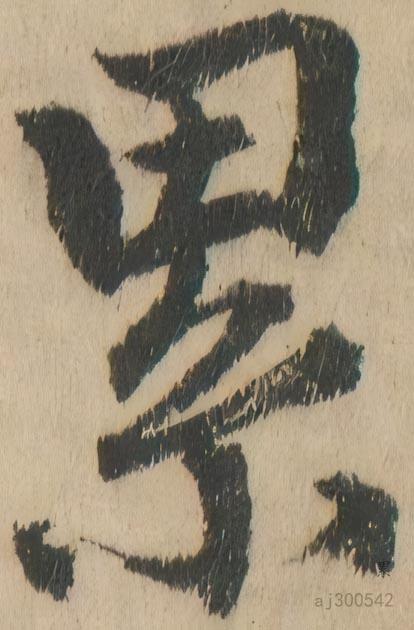 累
aj300542